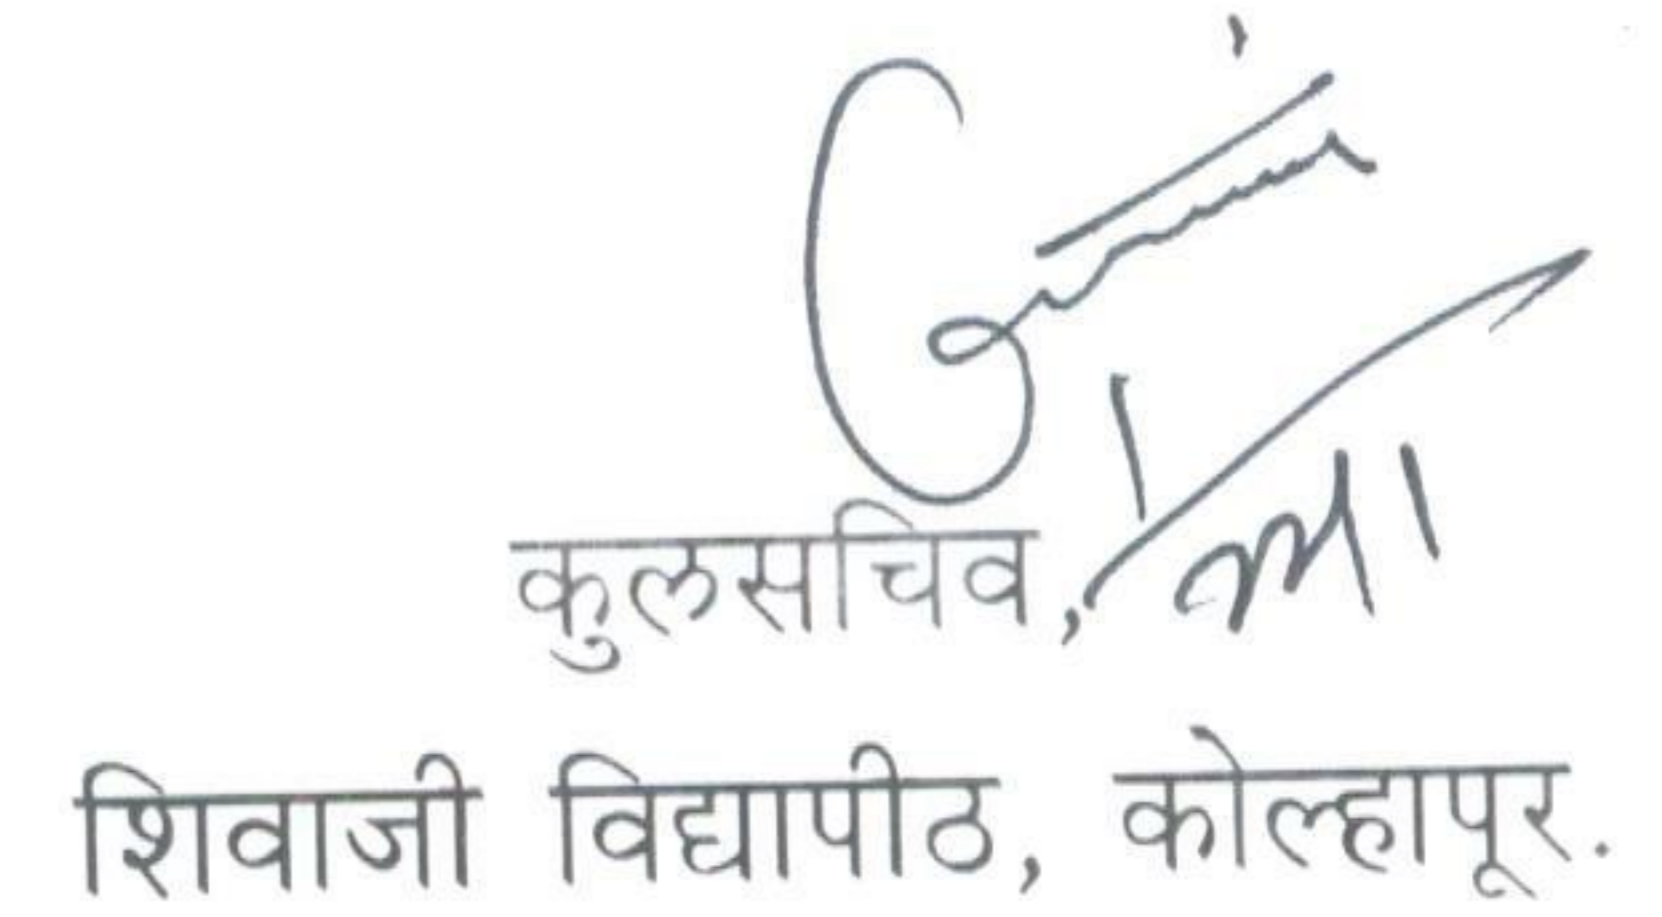 कुलसचिव,
शिवाजी विद्यापीठ, कोल्हापूर.